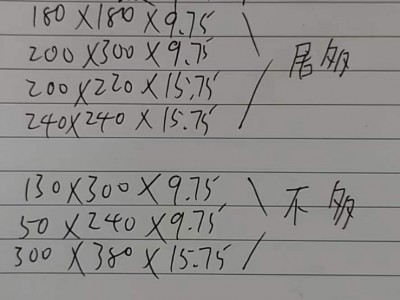 180×180×9.75
200×300×9.75
200×220×15.75
240×240×15.75
居多
130×300×9.75
50×240×9.75
300×380×15.75
不多